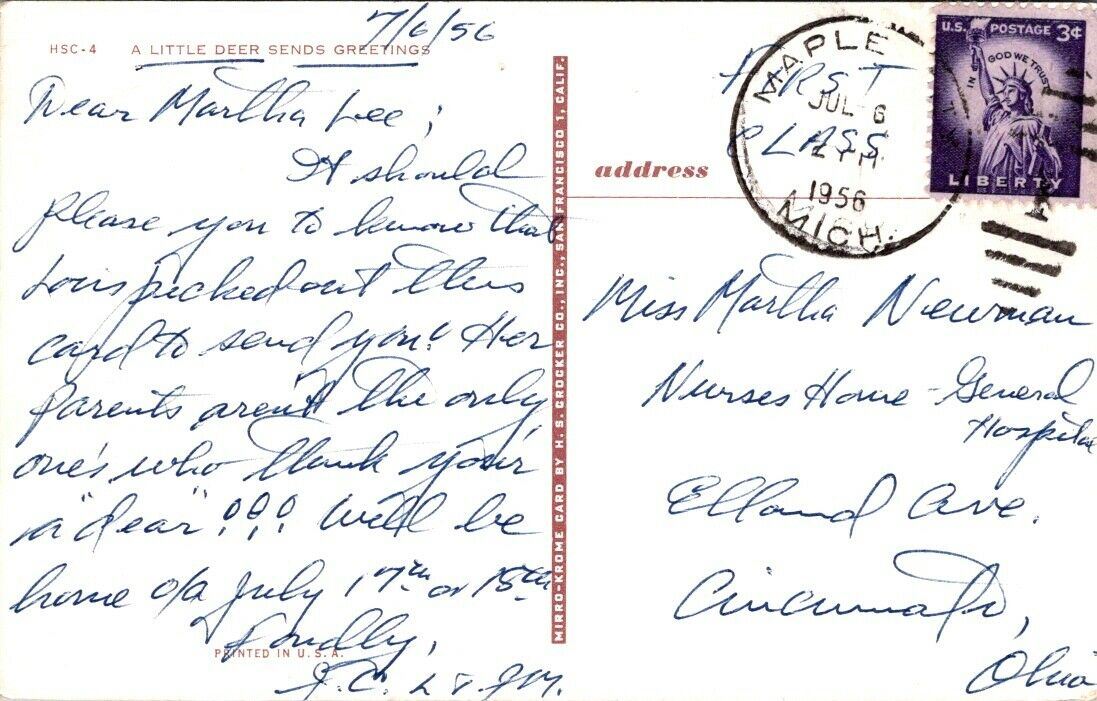 7/6/56
HSC-4 A LITTLE DEER SENDS GREETINGS
Dear Martha Lee;
It should
please you to know that
Lois picked out this
card to send you! Her
parents aren't the only
one's who think your
a "dear"!!! Will be
home o/a July 17th or 18th
Fondly,
J.C. L & J M.
PRINTED IN U.S.A.
MIRRO-KROME CARD BY H. S. CROCKER CO., INC., SAN FRANCISCO 1, CALIF.
FIRST
CLASS
address
MAPLE
JUL 6
1956
MICH.
U.S. POSTAGE 3¢
IN GOD WE TRUST
LIBERTY
Miss Martha Newman
Nurses Home - General
Hospital
Elland Ave.
Cincinnati,
Ohio